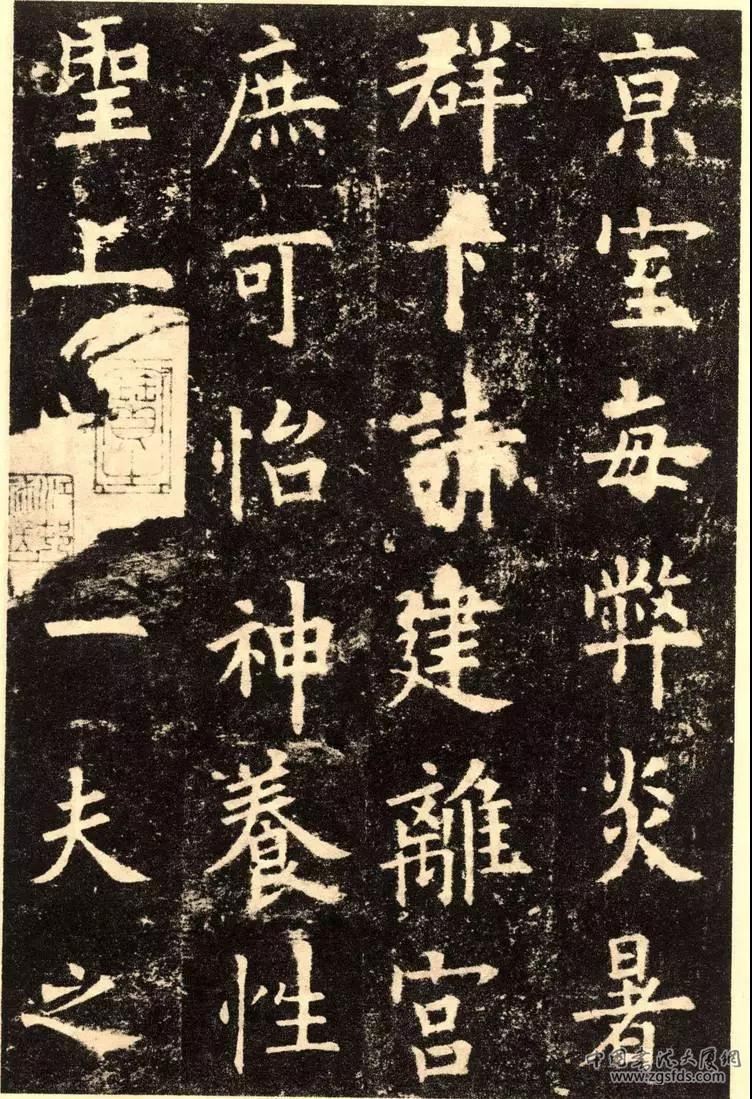 京室每弊炎暑
群下請建離宮
庶可怡神養性
聖上
一夫之
中国书法大展网
www.zgsfds.com